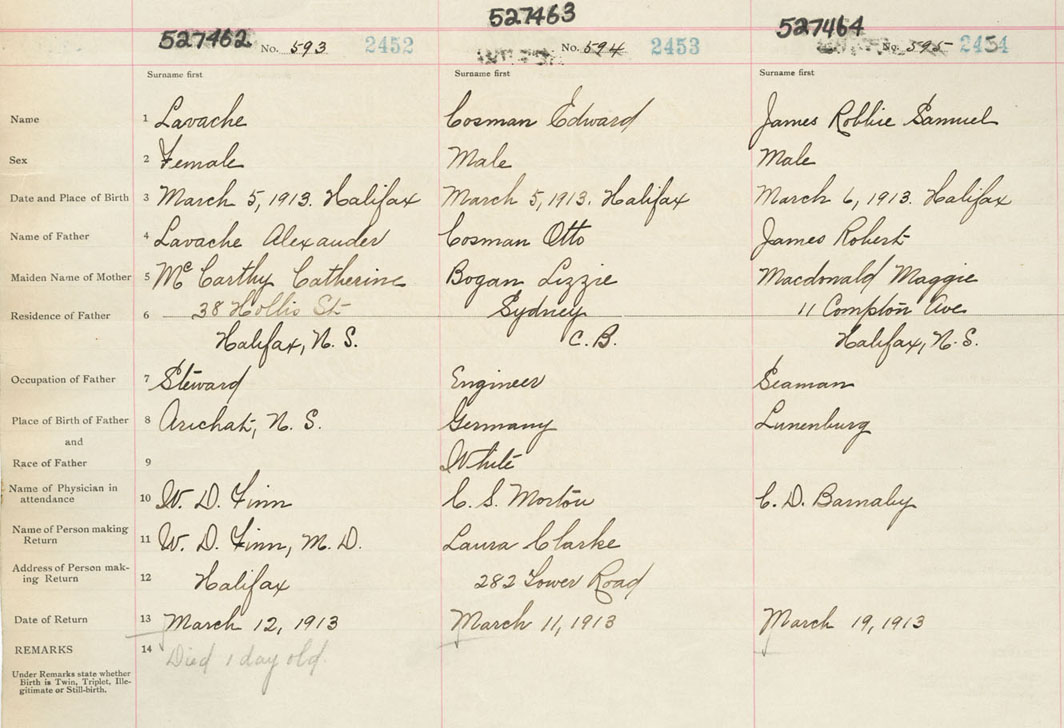 527462 527463 527464
No. 593 2452 No. 594 2453 No. 595 2454
Surname first Surname first Surname first
Name 1 Lavache Cosman Edward James Robbie Samuel
Sex 2 Female Male Male
Date and Place of Birth 3 March 5, 1913. Halifax March 5, 1913. Halifax March 6, 1913. Halifax
Name of Father 4 Lavache Alexander Cosman Otto James Robert
Maiden Name of Mother 5 Mc Carthy Catherine Bogan Lizzie Macdonald Maggie
Residence of Father 6 38 Hollis St Sydney 11 Compton Ave
Halifax, N. S. C. B. Halifax, N. S.
Occupation of Father 7 Steward Engineer Seaman
Place of Birth of Father 8 Arichat, N. S. Germany Lunenburg
and
Race of Father 9 White
Name of Physician in
attendance 10 W. D. Finn C. S. Morton C. D. Barnaby
Name of Person making
Return 11 W. D. Finn, M. D. Laura Clarke
Address of Person mak-
ing Return 12 Halifax 282 Tower Road
Date of Return 13 March 12, 1913 March 11, 1913 March 19, 1913
REMARKS 14 Died 1 day old.
Under Remarks state whether
Birth is Twin, Triplet, Ille-
gitimate or Still-birth.